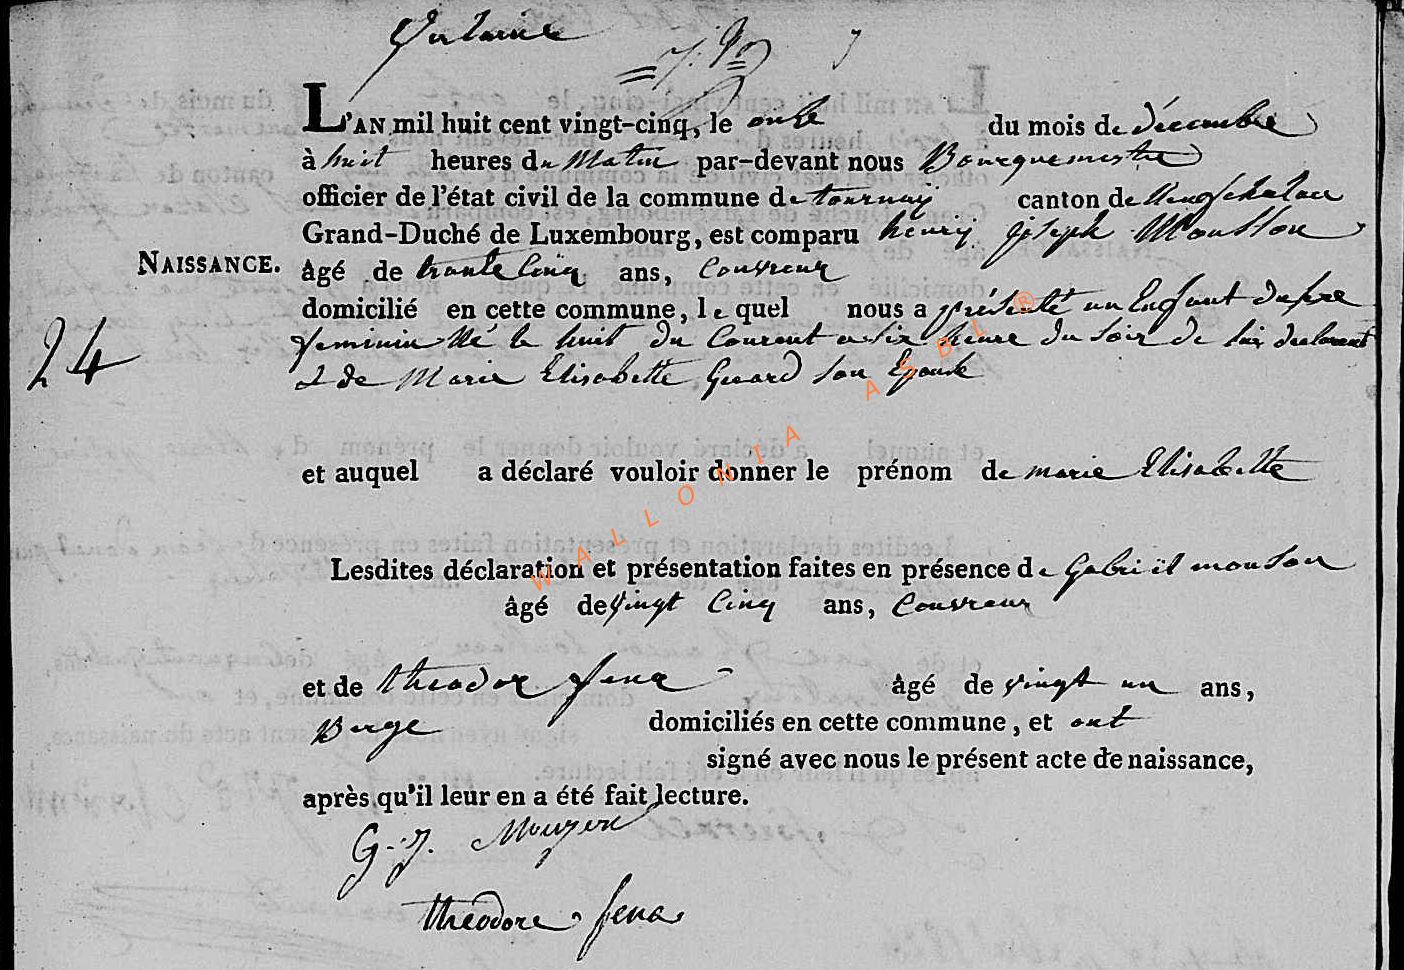 L'AN mil huit cent vingt-cinq, le onze du mois de décembre
à huit heures du Matin par-devant nous Bourguemestre
officier de l'état civil de la commune de tournay canton de Neufchateau
Grand-Duché de Luxembourg, est comparu henry joseph Mouson
NAISSANCE. âgé de trante Cinq ans, Couvreur
domicilié en cette commune, le quel nous a présenté un Enfant du sexe
24 feminin Né le huit du Courent a six heure du soir de lui declarent
& de Marie Elisabette Gerard son Epouse
et auquel a déclaré vouloir donner le prénom de marie Elisabette
Lesdites déclaration et présentation faites en présence de Gabriël mouson
âgé de vingt Cinq ans, Couvreur
et de theodore fena âgé de vingt un ans,
Berge domiciliés en cette commune, et ont
signé avec nous le présent acte de naissance,
après qu'il leur en a été fait lecture.
G. J. Mouzon
théodore fena
WALLONIA ASBL ®